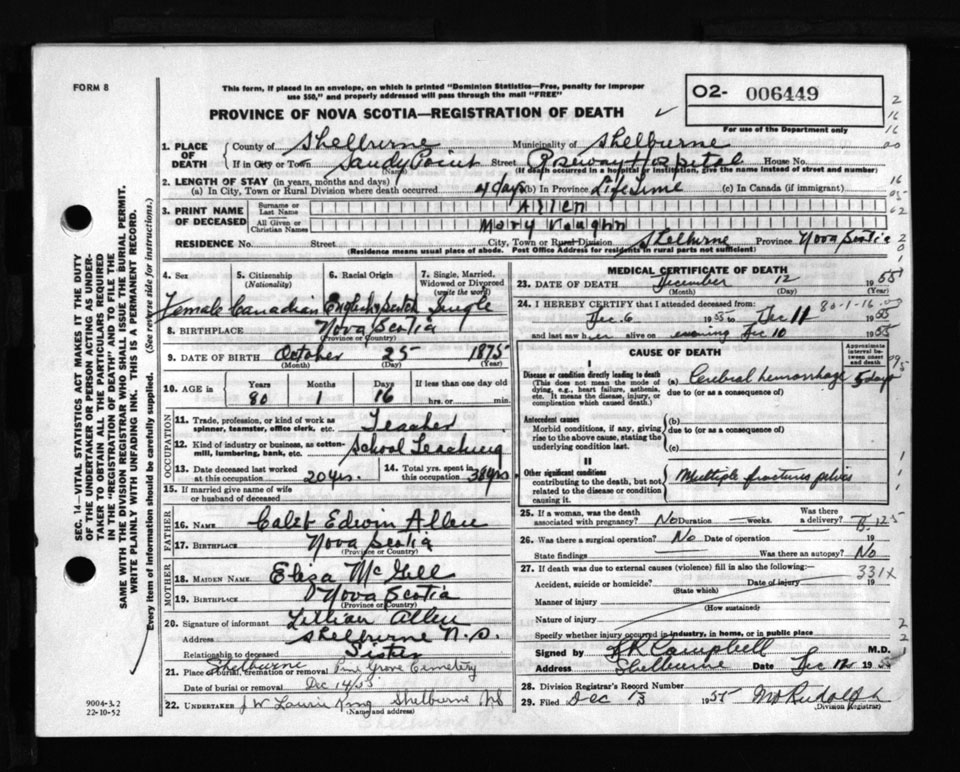 FORM 8
This form, if placed in an envelope, on which is printed "Dominion Statistics—Free, penalty for improper
use $50," and properly addressed will pass through the mail "FREE"
PROVINCE OF NOVA SCOTIA—REGISTRATION OF DEATH
O2- 006449
For use of the Department only
SEC. 14—VITAL STATISTICS ACT MAKES IT THE DUTY
OF THE UNDERTAKER OR PERSON ACTING AS UNDER-
TAKER TO OBTAIN ALL THE PARTICULARS REQUIRED
IN THE "REGISTRATION OF DEATH" AND TO FILE THE
SAME WITH THE DIVISION REGISTRAR WHO SHALL ISSUE THE BURIAL PERMIT.
WRITE PLAINLY WITH UNFADING INK. THIS IS A PERMANENT RECORD.
Every item of information should be carefully supplied. (See reverse side for instructions.)
1. PLACE OF DEATH County of Shelburne Municipality of Shelburne
If in City or Town Sandy Point Street Roseway Hospital House No.
(Name) (If death occurred in a hospital or institution, give the name instead of street and number)
2. LENGTH OF STAY (in years, months and days)
(a) In City, Town or Rural Division where death occurred 4 days (b) In Province Life Time (c) In Canada (if immigrant)
3. PRINT NAME OF DECEASED Surname or Last Name Allen
All Given or Christian Names Mary Vaughn
RESIDENCE No. Street City, Town or Rural Division Shelburne Province Nova Scotia
(Residence means usual place of abode. Post Office Address for residents in rural parts not sufficient)
4. Sex 5. Citizenship (Nationality) 6. Racial Origin 7. Single, Married, Widowed or Divorced (write the word)
Female Canadian English Scotch Single
8. BIRTHPLACE Nova Scotia
(Province or Country)
9. DATE OF BIRTH October 25 1875
(Month) (Day) (Year)
10. AGE in Years Months Days If less than one day old
80 1 16 hrs. or min.
OCCUPATION
11. Trade, profession, or kind of work as spinner, teamster, office clerk, etc. Teacher
12. Kind of industry or business, as cotton-mill, lumbering, bank, etc. School Teaching
13. Date deceased last worked at this occupation 20 yrs. 14. Total yrs. spent in this occupation 38 yrs
15. If married give name of wife or husband of deceased
FATHER
16. NAME Caleb Edwin Allen
17. BIRTHPLACE Nova Scotia
(Province or Country)
MOTHER
18. MAIDEN NAME Eliza McGill
19. BIRTHPLACE Nova Scotia
(Province or Country)
20. Signature of informant Lillian Allen
Address Shelburne N.S.
Relationship to deceased Sister
21. Place of burial, cremation or removal Shelburne Pine Grove Cemetery
Date of burial or removal Dec 14/55
22. UNDERTAKER J W Laurie King Shelburne NS
(Name and address)
9004-3.2
22-10-52
MEDICAL CERTIFICATE OF DEATH
23. DATE OF DEATH December 12 1955
(Month) (Day) (Year)
24. I HEREBY CERTIFY that I attended deceased from 80-1-16
Dec. 6 1955 to Dec 11 1955
and last saw her alive on evening Dec 10 1955
CAUSE OF DEATH
Approximate interval between onset and death
I
Disease or condition directly leading to death (a) Cerebral hemorrhage 5 days
(This does not mean the mode of dying, e.g., heart failure, asthenia, etc. It means the disease, injury, or complication which caused death.) due to (or as a consequence of)
Antecedent causes (b)
Morbid conditions, if any, giving rise to the above cause, stating the underlying condition last. due to (or as a consequence of)
(c)
II
Other significant conditions contributing to the death, but not related to the disease or condition causing it. Multiple fractures pelvis
25. If a woman, was the death associated with pregnancy? No Duration weeks. Was there a delivery?
26. Was there a surgical operation? No Date of operation 19
State findings Was there an autopsy? No
27. If death was due to external causes (violence) fill in also the following: 331X
Accident, suicide or homicide? Date of injury 19
(State which)
Manner of injury
(How sustained)
Nature of injury
Specify whether injury occurred in industry, in home, or in public place
Signed by Campbell M.D.
Address Shelburne Date Dec 12 1955
28. Division Registrar's Record Number
29. Filed Dec 13 1955 Rudolph
(Division Registrar)